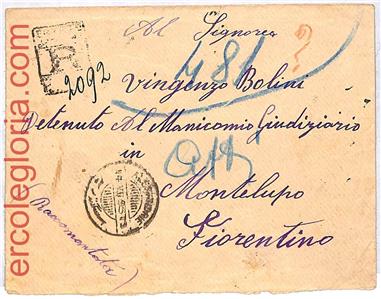 Al Signore
R
2092
481
Vingenzo Bolini
Detenuto Al Manicomio Giudiziario
in
Montelupo
Fiorentino
(Raccomandata)
ercolegloria.com